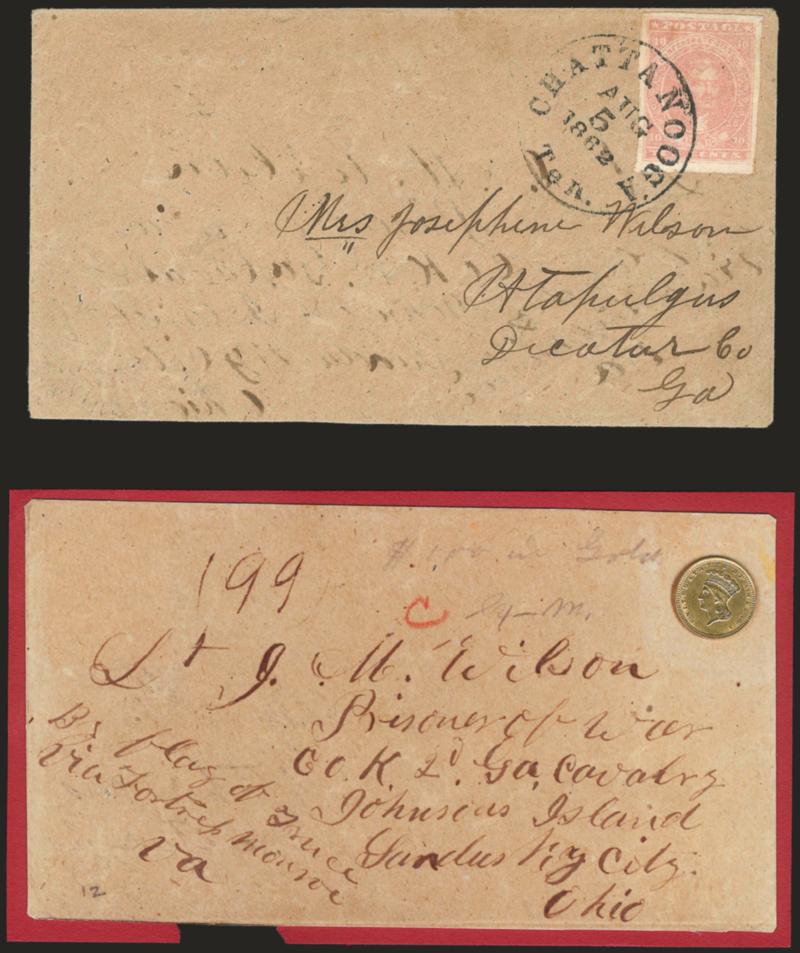 POSTAGE
10 10
CENTS
CHATTANOOGA
AUG
5
1862
Ten.
Mrs Josephine Wilson
Attapulgus
Decatur Co
Ga
199
$1.00 in Gold
C
Lt J. M. Wilson
Prisoner of War
Co. K. 2d Ga. Cavalry
Johnsons Island
Sandusky City.
Ohio
By flag of Truce
Via Fortress Monroe
Va
12